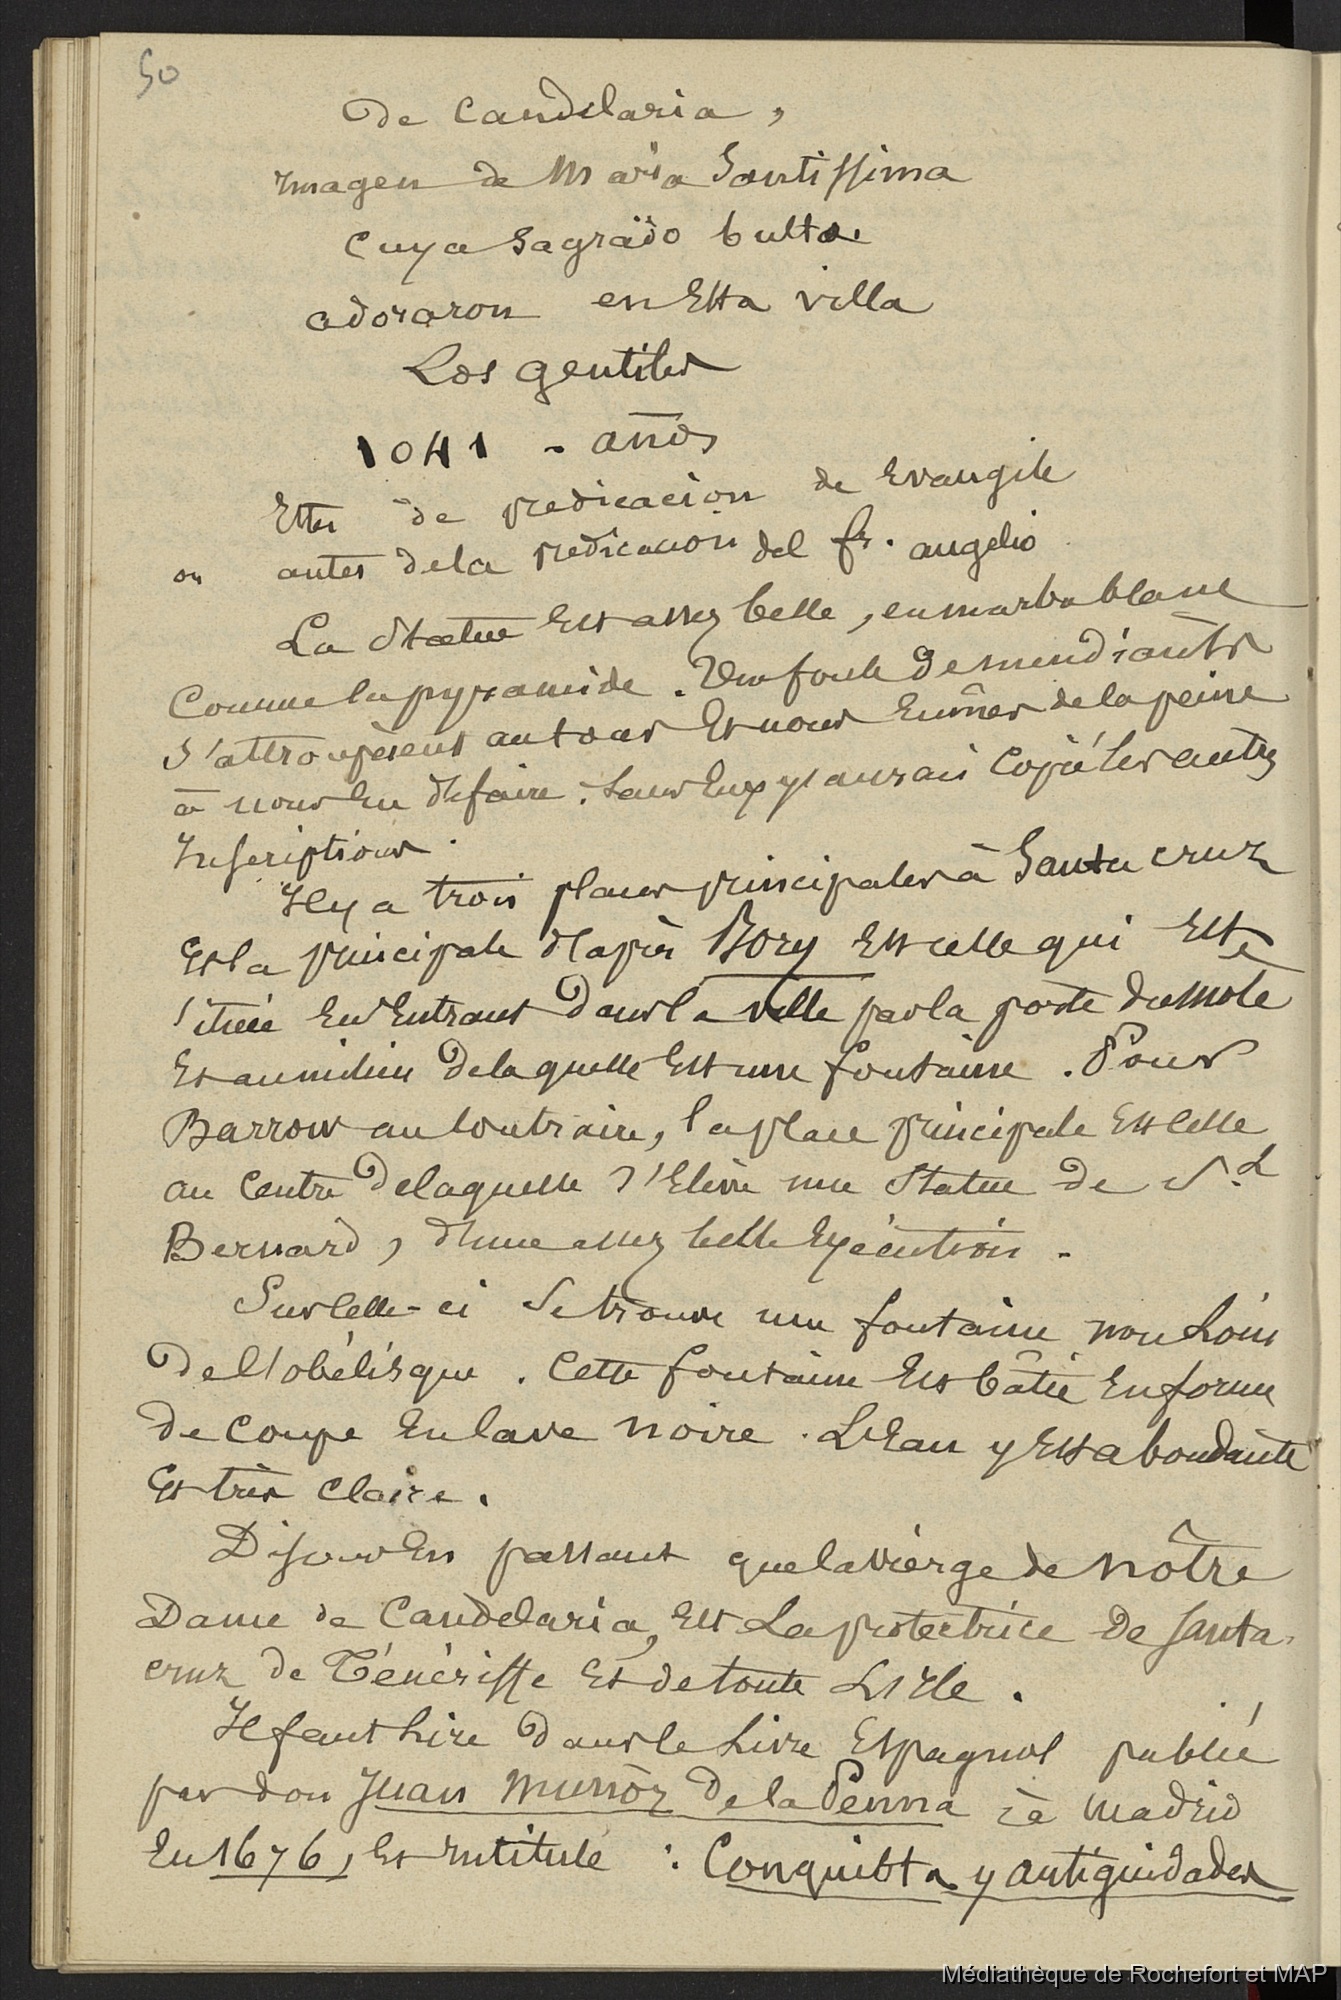 50
De Candelaria,
Imagen de Maria Santissima
Cuya Sagrado bulto.
adoraron en Esta villa
Los gentiles
1041 - anõs
Ettes de predicacion de Evangile
ou antes de la predicacion del fr. angelio
La Statue Est assez belle, en marbre blanc
Comme la pyramide. Une foule de mendiants
S'attroupèrent autour Et nous Eumes de la peine
à nous En défaire. Sans Eux j'aurais Copié les autres
Inscriptions.
Il y a trois places principales à Santa cruz
Et la principale d'après Bory Est celle qui Est
située En Entrant Dans la ville par la porte du mole
Et au milieu De laquelle Est une fontaine. Pour
Barrow au Contraire, la place principale Est Celle
au Centre De laquelle s'Elève une Statue de St
Bernard, d'une assez belle Exécution.
Sur Celle-ci Se trouve une fontaine non Loin
De l'obélisque. Cette fontaine Est bâtie En forme
De Coupe En lave noire. L'Eau y Est abondante
Et très Claire.
Disons En passant que la vierge de nôtre
Dame de Candelaria, Est La protectrice De Santa-
cruz de Ténériffe Et de toute L'isle.
Il faut Lire Dans le Livre Espagnol publié
par don Juan Munõz De la Penna à Madrid
En 1676, Et Intitulé : Conquista y antiguidades
Médiathèque de Rochefort et MAP